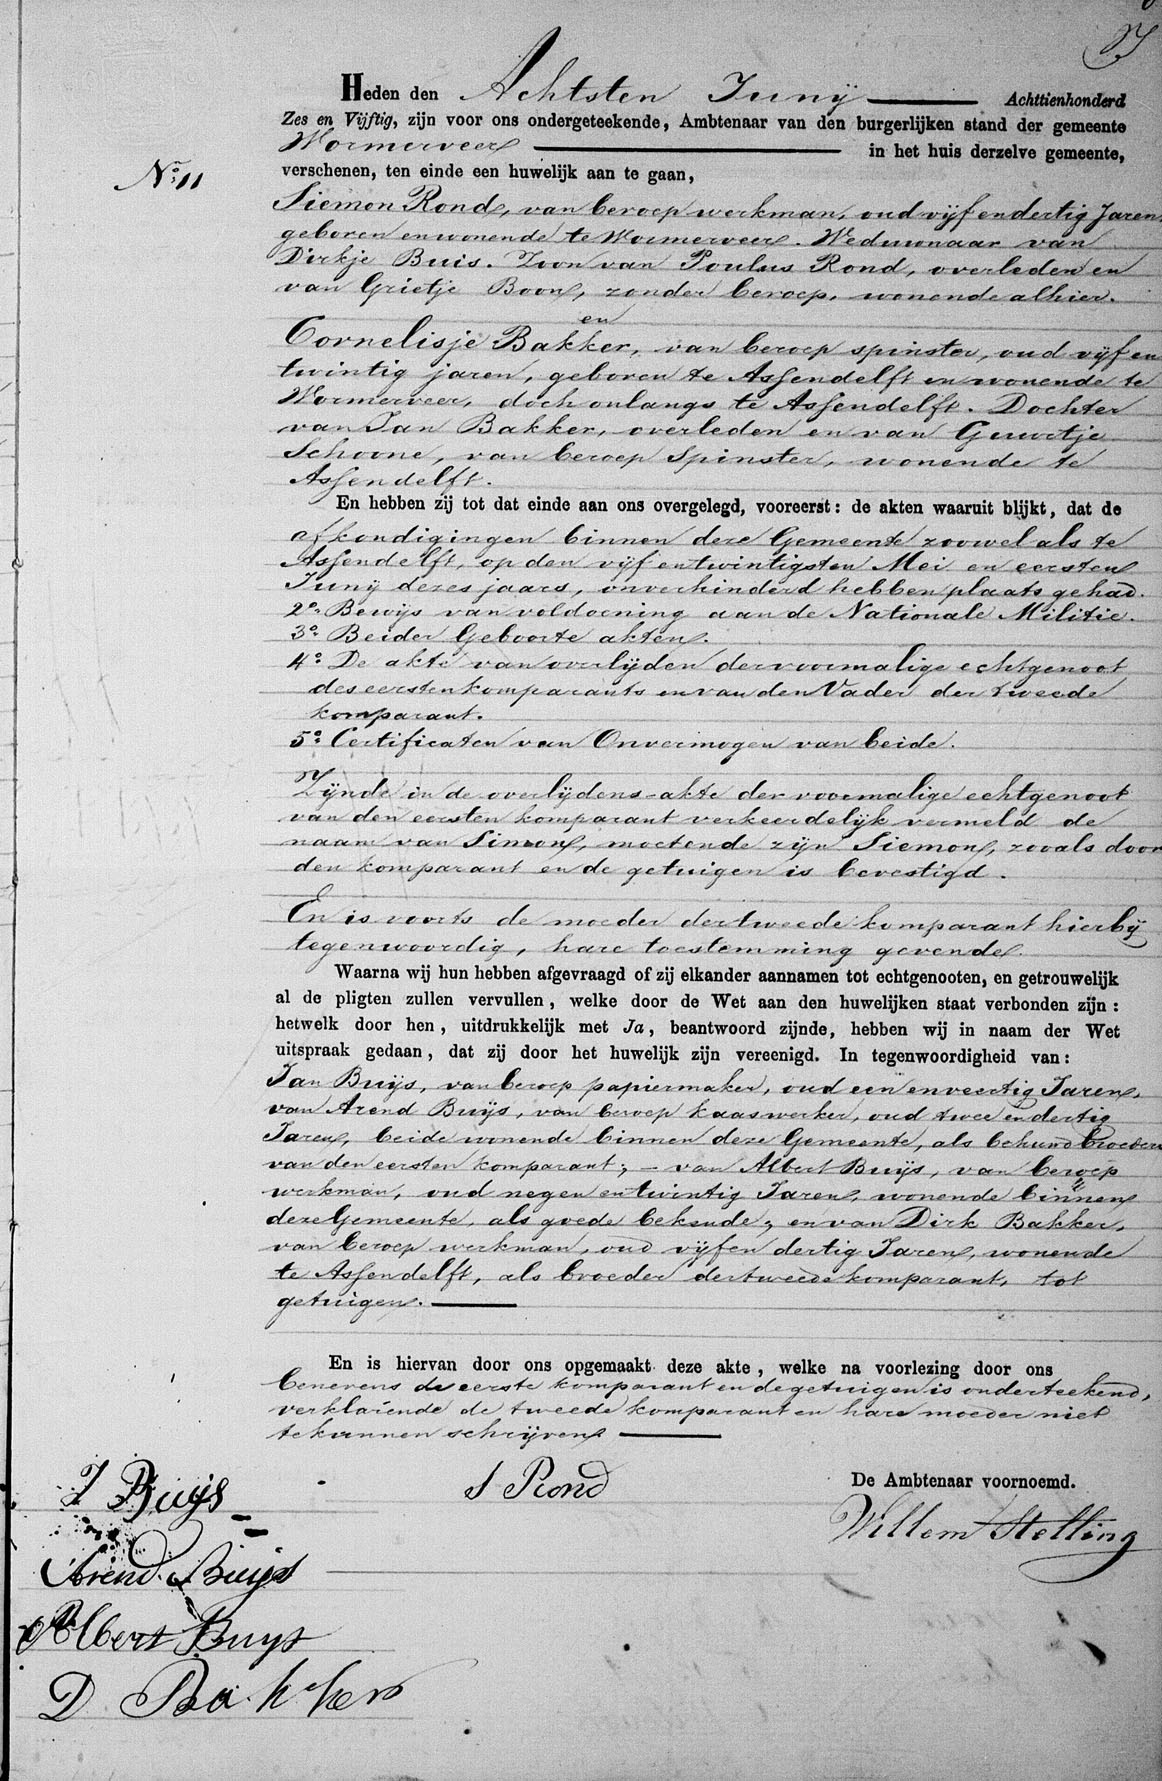 Heden den Achtsten Junij Achttienhonderd
Zes en Vijftig, zijn voor ons ondergeteekende, Ambtenaar van den burgerlijken stand der gemeente
Wormerveer in het huis derzelve gemeente,
No. 11
verschenen, ten einde een huwelijk aan te gaan,
Siemon Rond, van beroep werkman, oud vijf en dertig Jaren,
geboren en wonende te Wormerveer. Weduwnaar van
Dirkje Buis. Zoon van Poulus Rond, overleden en
van Grietje Boon, zonder beroep, wonende alhier.
en
Cornelisje Bakker, van beroep spinster, oud vijf en
twintig jaren, geboren te Assendelft en wonende te
Wormerveer, doch onlangs te Assendelft. Dochter
van Jan Bakker, overleden en van Guurtje
Schoone, van beroep Spinster, wonende te
Assendelft.
En hebben zij tot dat einde aan ons overgelegd, vooreerst: de akten waaruit blijkt, dat de
afkondigingen binnen deze Gemeente zoowel als te
Assendelft, op den vijf en twintigsten Mei en eersten
Junij dezes jaars, onverhinderd hebben plaats gehad.
2o. Bewijs van voldoening aan de Nationale Militie.
3o. Beider Geboorte akten.
4o. De akte van overlijden der voormalige echtgenoot
des eersten komparants en van den Vader der tweede
komparant.
5o. Certificaten van Onvermogen van beide.
Zijnde in de overlijdens-akte der voormalige echtgenoot
van den eersten komparant verkeerdelijk vermeld de
naam van Simon, moetende zijn Siemon, zooals door
den komparant en de getuigen is bevestigd.
En is voorts de moeder der tweede komparant hierbij
tegenwoordig, hare toestemming gevende.
Waarna wij hun hebben afgevraagd of zij elkander aannamen tot echtgenooten, en getrouwelijk
al de pligten zullen vervullen, welke door de Wet aan den huwelijken staat verbonden zijn:
hetwelk door hen, uitdrukkelijk met Ja, beantwoord zijnde, hebben wij in naam der Wet
uitspraak gedaan, dat zij door het huwelijk zijn vereenigd. In tegenwoordigheid van:
Jan Buijs, van beroep papiermaker, oud een en veertig Jaren,
van Arend Buijs, van beroep kaaswerker, oud twee en dertig
Jaren, beide wonende binnen deze Gemeente, als behuwd broeders
van den eersten komparant; – van Albert Buijs, van beroep
werkman, oud negen en twintig Jaren, wonende binnen
deze Gemeente, als goede bekende, en van Dirk Bakker,
van beroep werkman, oud vijf en dertig Jaren, wonende
te Assendelft, als broeder der tweede komparant, tot
getuigen.
En is hiervan door ons opgemaakt deze akte, welke na voorlezing door ons
benevens de eerste komparant en de getuigen is onderteekend,
verklarende de tweede komparant en hare moeder niet
te kunnen schrijven
J Buijs
S Rond
De Ambtenaar voornoemd.
Willem Stelling
Arend Buijs
Albert Buijs
D Bakker